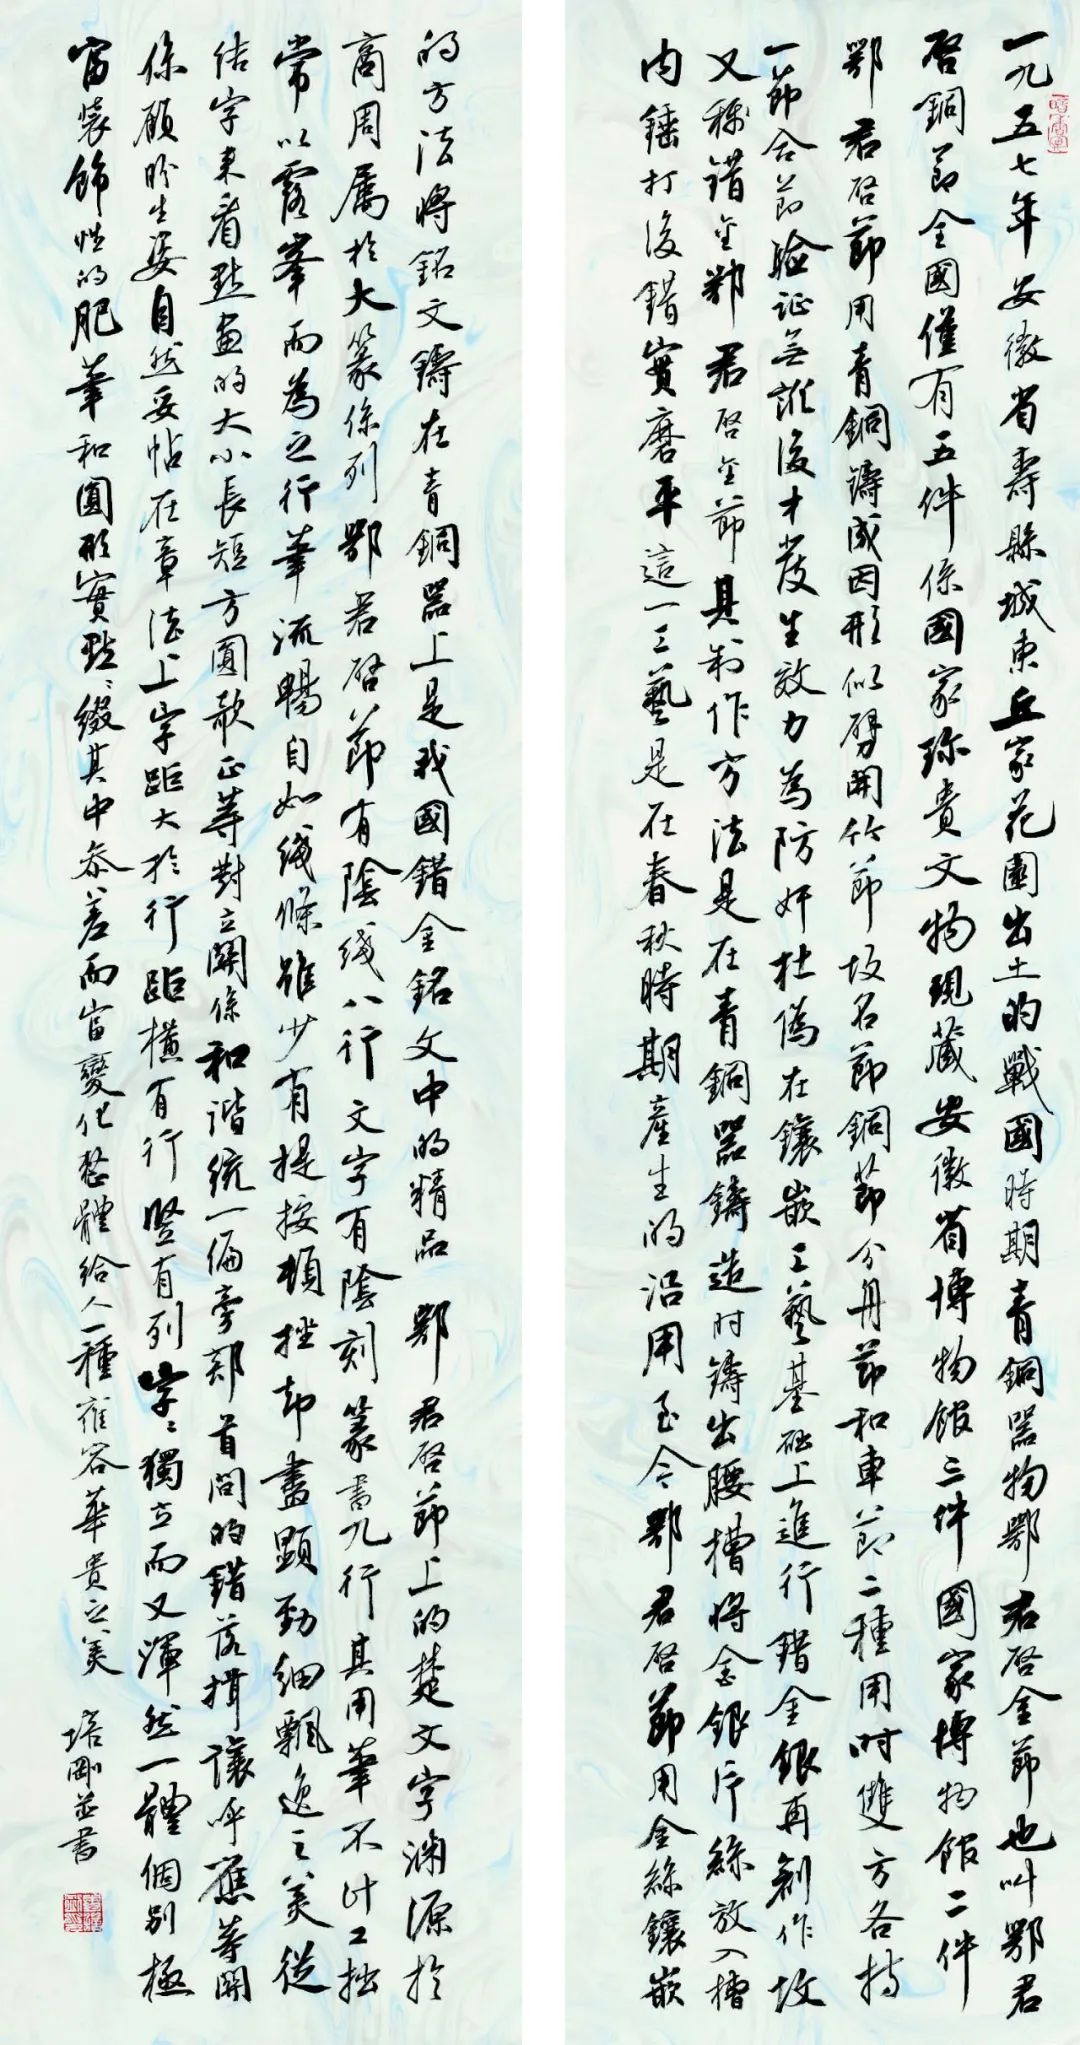 一九五七年安徽省壽縣城東丘家花園出土的戰國時期青銅器物鄂君啓金節也叫鄂君
啓銅節全國僅有五件係國家珍貴文物現藏安徽省博物館三件國家博物館二件
鄂君啓節用青銅鑄成因形似劈開竹節故名節銅節分舟節和車節二種用时雙方各持
一節合節驗证無誤後才發生效力為防奸杜僞在鑲嵌工藝基础上進行錯金銀再創作故
又稱錯金鄂君啓金節具制作方法是在青銅器鑄造时鑄出腰槽将金銀片絲放入槽
内錘打後錯實磨平這一工藝是在春秋時期產生的沿用至今鄂君啓節用金絲鑲嵌
的方法将銘文鑄在青銅器上是我國錯金銘文中的精品鄂君啓節上的楚文字淵源於
商周屬於大篆係列鄂君啓節有陰綫八行文字有陰刻篆書九行其用筆不计工拙
常以露峯而為之行筆流暢自如綫條雖少有提按頓挫却盡顯勁細飄逸之美從
结字来看點畫的大小長短方圓欹正等對立關係和谐統一偏旁部首間的錯落揖讓呼應等関
係顾盼生姿自然妥帖在章法上字距大於行距橫有行豎有列字字獨立而又渾然一體個别極
富裝飾性的肥筆和圓形實點點綴其中参差而富變化整體给人一種雍容華貴之美
培剛並書